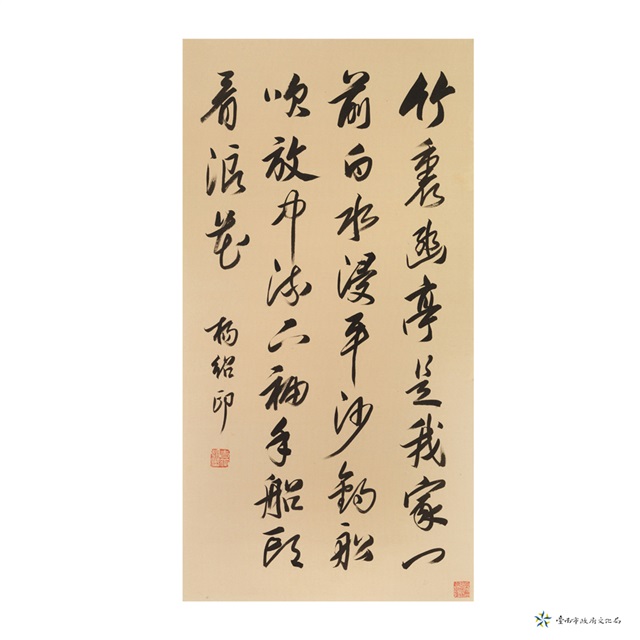 竹裏幽亭是我家門
前白水浸平沙釣船
吹放中流下袖手船頭
看浪花
楊紹印
臺南市政府文化局